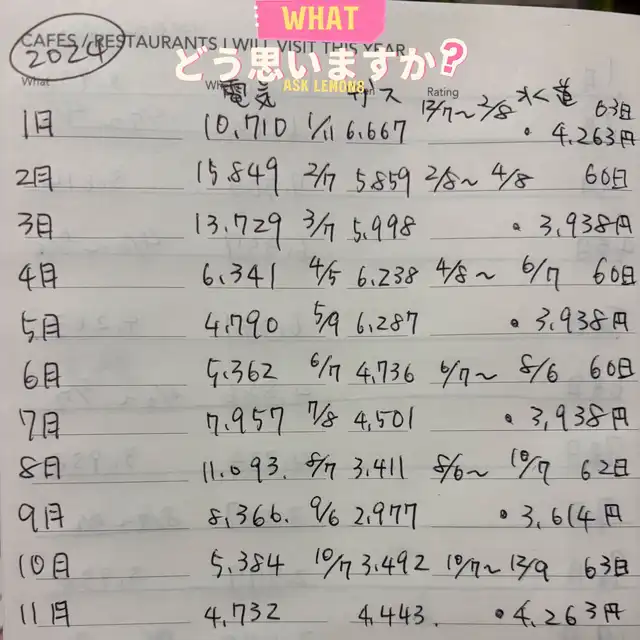 WHAT
CAFES / RESTAURANTS I WILL VISIT THIS YEAR
2024
どう思いますか?
ASK LEMON8
What
電気 ガス Rating 水道
12/7～2/8 63日
1月 10,710 1/11 6,667 ・4,263円
2月 15,849 2/7 5,859 2/8～4/8 60日
3月 13,729 3/7 5,998 ・3,938円
4月 6,341 4/5 6,238 4/8～6/7 60日
5月 4,790 5/9 6,287 ・3,938円
6月 5,362 6/7 4,736 6/7～8/6 60日
7月 7,957 7/8 4,501 ・3,938円
8月 11,093. 8/7 3,411 8/6～10/7 62日
9月 8,366. 9/6 2,977 ・3,614円
10月 5,384 10/7 3,492 10/7～12/9 63日
11月 4,732 4,443. ・4,263円